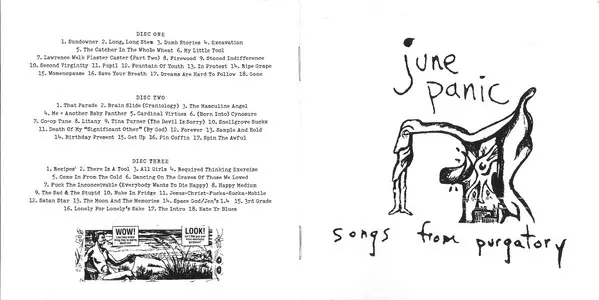 DISC ONE
1. Sundowner 2. Long, Long Stem 3. Dumb Stories 4. Excavation
5. The Catcher In The Whole Wheat 6. My Little Tool
7. Lawrence Welk Plaster Caster (Part Two) 8. Firewood 9. Stoned Indifference
10. Second Virginity 11. Pupil 12. Fountain Of Youth 13. In Protest 14. Ripe Grape
15. Womenopause 16. Save Your Breath 17. Dreams Are Hard To Follow 18. Gone
DISC TWO
1. That Parade 2. Brain Slide (Craniology) 3. The Masculine Angel
4. Me + Another Baby Panther 5. Cardinal Virtues 6. (Born Into) Cynosure
7. Co-op Tune 8. Litany 9. Tina Turner (The Devil Is Sorry) 10. Snellgrove Sucks
11. Death Of My "Significant Other" (By God) 12. Forever 13. Sample And Hold
14. Birthday Present 15. Get Up 16. Pin Coffin 17. Spin The Awful
DISC THREE
1. Recipes' 2. There Is A Tool 3. All Girls 4. Required Thinking Exercise
5. Come In From The Cold 6. Dancing On The Graves Of Those We Loved
7. Fuck The Inconceivable (Everybody Wants To Die Happy) 8. Happy Medium
9. The Sad & The Stupid 10. Nuke In Fridge 11. Jesus-Christ-Fucka-Sucka-Mobile
12. Satan Star 13. The Moon And The Memories 14. Space God/Jen's 1.4 15. 3rd Grade
16. Lonely For Lonely's Sake 17. The Intro 18. Hate Yr Blues
WOW!
LOOK!
june
panic
songs from purgatory